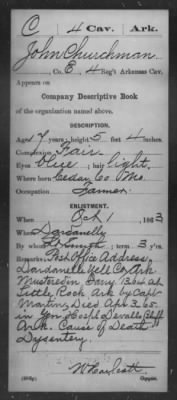 C | 4 Cav. | Ark.
John Churchman
, Co. E, 4 Reg't Arkansas Cav.
Appears on
Company Descriptive Book
of the organization named above.
DESCRIPTION.
Age 17 years; height 5 feet 4 inches.
Complexion Fair
Eyes blue; hair light
Where born Cedar Co Mo.
Occupation Farmer
ENLISTMENT.
When Oct 1, 1863
Where Dardanelly
By whom; term 3 y'rs.
Remarks: Post Office Address
Dardanelle Yell Co Ark
Mustered in Jany 13 64 at
Little Rock Ark by Capt
Martin, Died Apr 3 65
in Gen Hosp Devalls Bluff
Ark. Cause of Death
Dysentery.
Copyist.